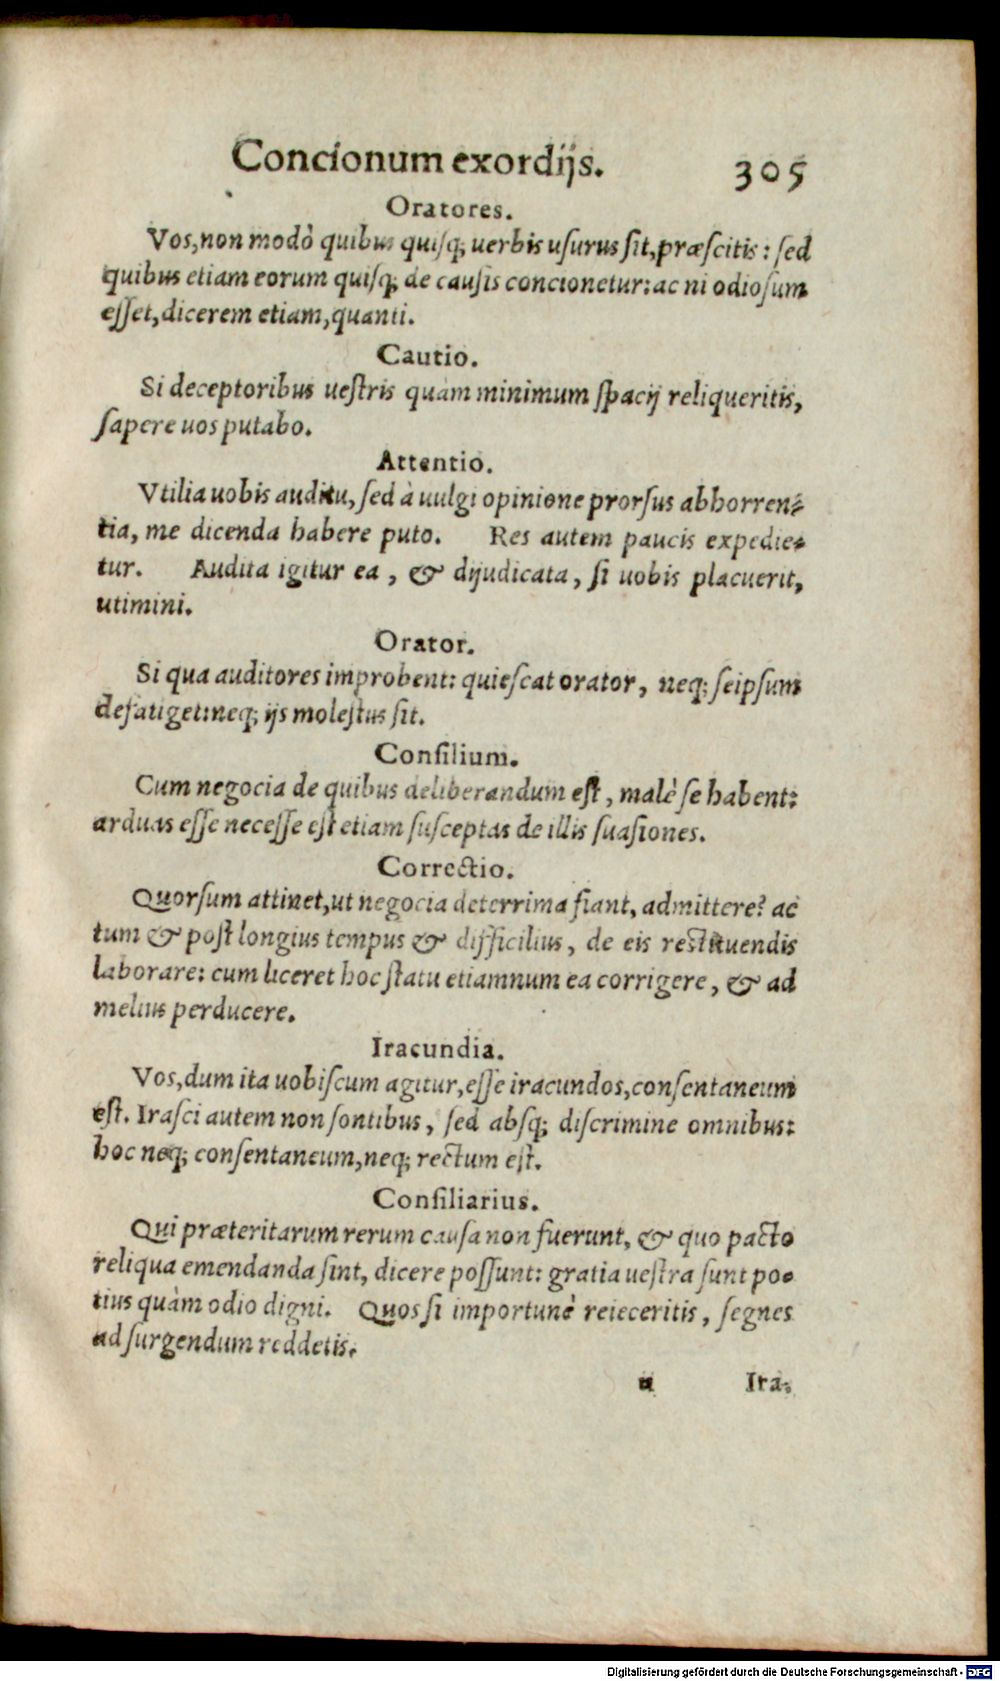 Concionum exordijs. 305
Oratores.
Vos, non modò quibus quisq; uerbis usurus sit, præscitis: sed
quibus etiam eorum quisq; de causis concionetur: ac ni odiosum
esset, dicerem etiam, quanti.
Cautio.
Si deceptoribus uestris quàm minimum spacij reliqueritis,
sapere uos putabo.
Attentio.
Vtilia uobis auditu, sed à uulgi opinione prorsus abhorren-
tia, me dicenda habere puto. Res autem paucis expedie-
tur. Audita igitur ea, & dijudicata, si uobis placuerit,
utimini.
Orator.
Si qua auditores improbent: quiescat orator, neq; seipsum
defatiget: neq; ijs molestus sit.
Consilium.
Cum negocia de quibus deliberandum est, malè se habent:
arduas esse necesse est etiam susceptas de illis suasiones.
Correctio.
Quorsum attinet, ut negocia deterrima fiant, admittere? ac
tum & post longius tempus & difficilius, de eis restituendis
laborare: cum liceret hoc statu etiamnum ea corrigere, & ad
melius perducere.
Iracundia.
Vos, dum ita uobiscum agitur, esse iracundos, consentaneum
est. Irasci autem non sontibus, sed absq; discrimine omnibus:
hoc neq; consentaneum, neq; rectum est.
Consiliarius.
Qui præteritarum rerum causa non fuerunt, & quo pacto
reliqua emendanda sint, dicere possunt: gratia uestra sunt po-
tius quàm odio digni. Quos si importunè reieceritis, segnes
ad surgendum reddetis.
u Ira-
Digitalisierung gefördert durch die Deutsche Forschungsgemeinschaft - DFG